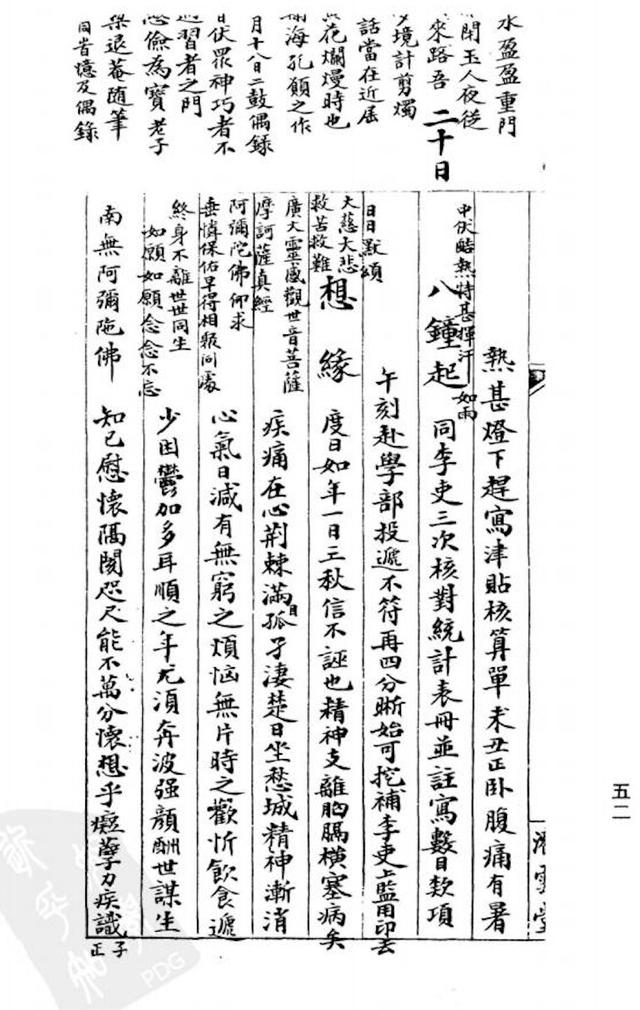 水盈盈重門
閉玉人夜從
來路吾
境計剪燭
話當在近屆
花爛熳時也
海孔頤之作
月十八日二鼓偶錄
伏眾神巧者不
習者之門
儉為寶老子
退菴隨筆
同省憶及偶錄
二十日
熱甚燈下趕寫津貼核算單未丑正卧腹痛有暑
中伏酷熱特甚揮汗如雨
八鐘起同李吏三次核對統計表冊並註寫數目欵項
午刻赴學部投遞不符再四分晰始可挖補李吏上監用印去
日日默頌
大慈大悲
救苦救難
廣大靈感觀世音菩薩
摩訶薩真經
阿彌陀佛仰求
垂憐保佑早得相親同處
終身不離世世同生
如願如願念念不忘
南無阿彌陁佛
想緣度日如年一日三秋信不誣也精神支離胸膈橫塞病矣
疾痛在心荊棘滿目孤孑淒楚日坐愁城精神漸消
心氣日減有無窮之煩惱無片時之歡忻飲食遞
少困鬱加多耳順之年尤須奔波强顏酬世謀生
知己慰懷隔閡咫尺能不萬分懷想乎癡孽力疾識子正
五二